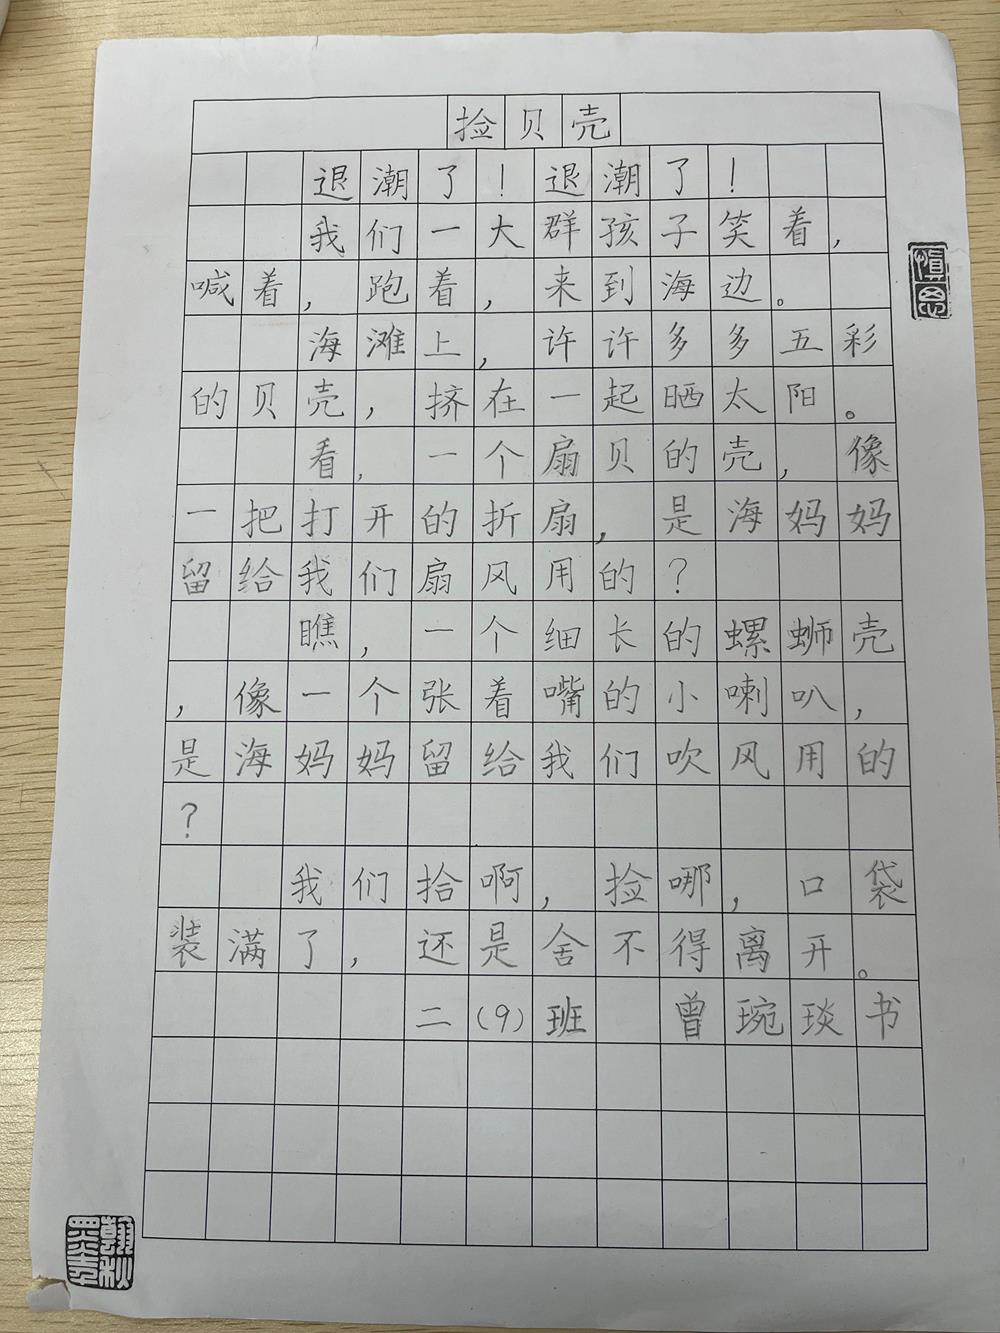 捡贝壳
退潮了！退潮了！
我们一大群孩子笑着，
喊着，跑着，来到海边。
海滩上，许许多多五彩
的贝壳，挤在一起晒太阳。
看，一个扇贝的壳，像
一把打开的折扇，是海妈妈
留给我们扇风用的？
瞧，一个细长的螺蛳壳
，像一个张着嘴的小喇叭，
是海妈妈留给我们吹风用的
？
我们拾啊，捡哪，口袋
装满了，还是舍不得离开。
二（9）班 曾琬琰书